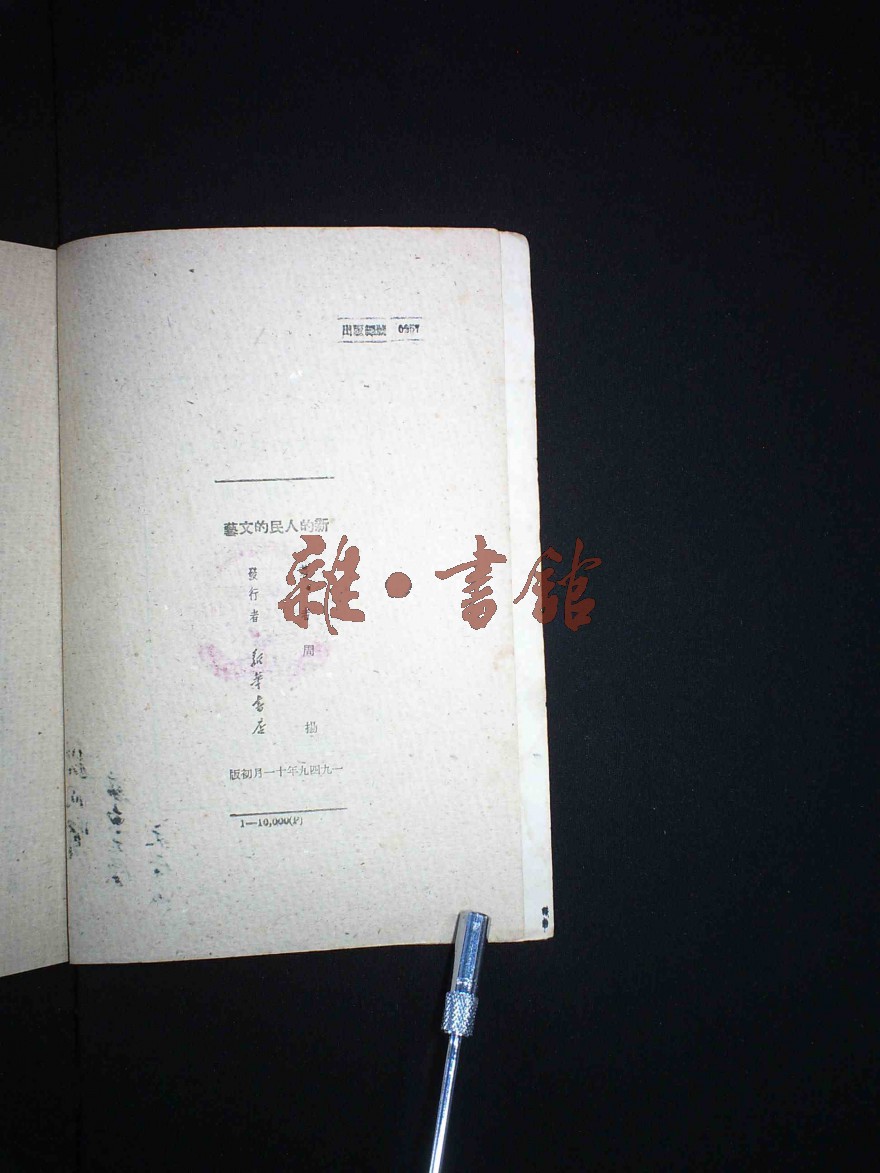 新的人民的文藝
周 揚
發行者 新華書店
一九四九年十一月初版
1—10,000(P)
雜·書館